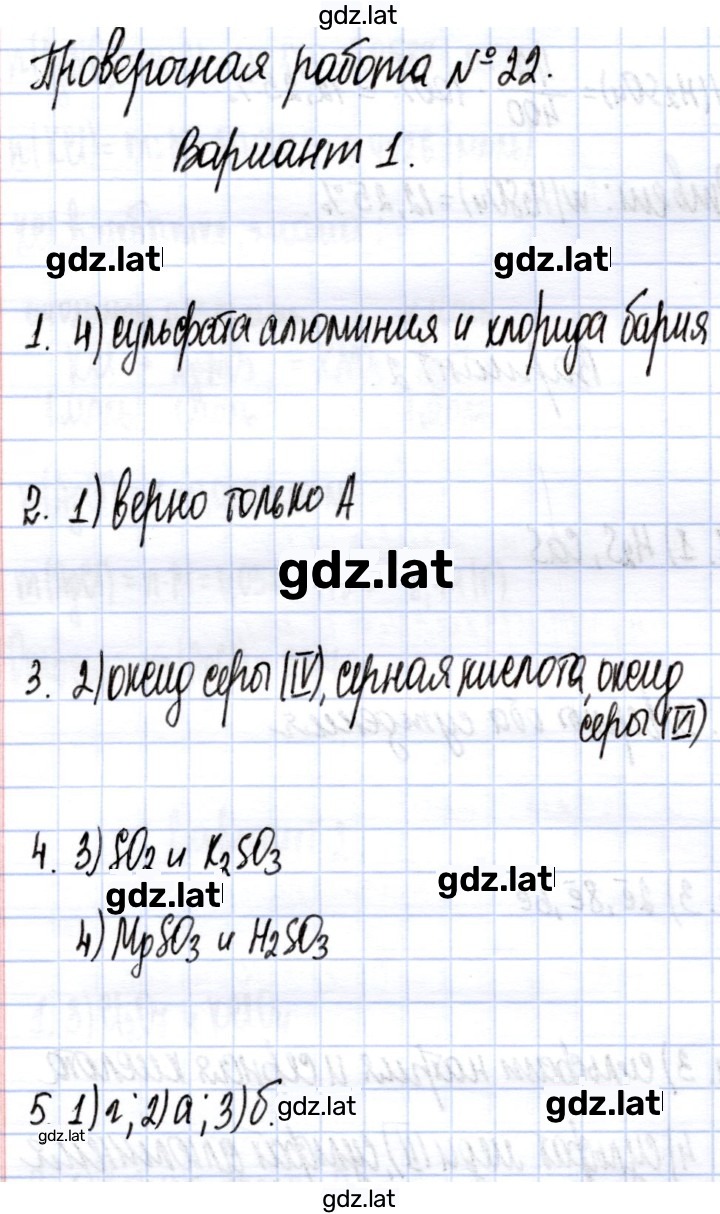 gdz.lat
Проверочная работа №22.
Вариант 1.
gdz.lat gdz.lat
1. 4) сульфата алюминия и хлорида бария
2. 1) верно только А
gdz.lat
3. 2) оксид серы (IV), серная кислота, оксид
серы (VI)
4. 3) SO2 и K2SO3
gdz.lat gdz.lat
4) MgSO3 и H2SO3
5. 1) г; 2) а; 3) б. gdz.lat gdz.lat
gdz.lat
gdz.lat